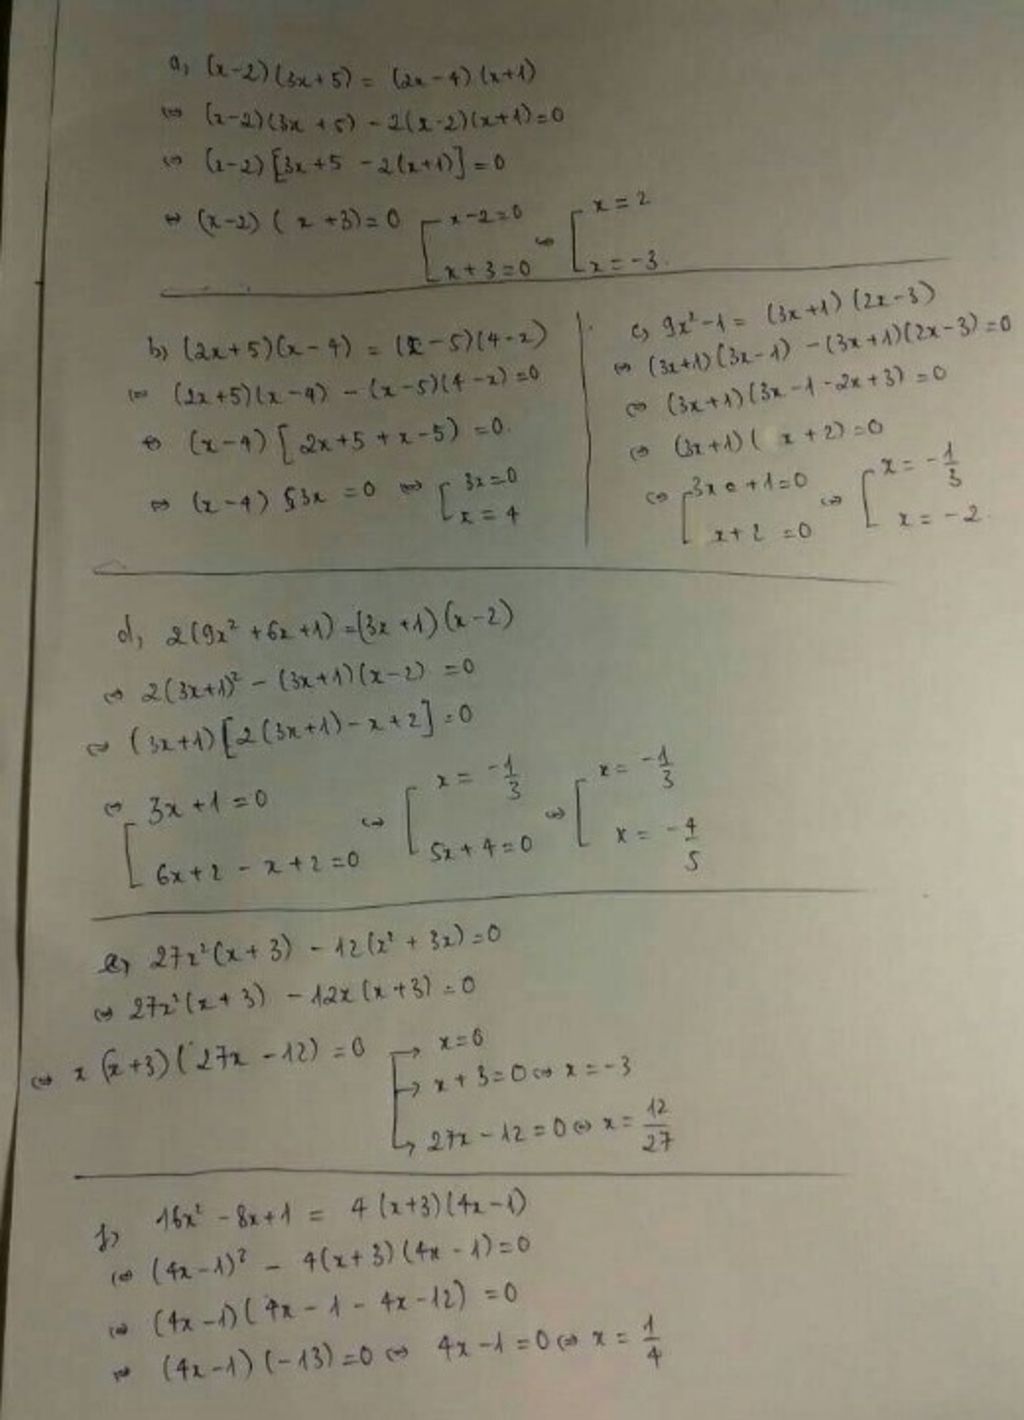 a, (x-2)(3x+5) = (2x-4)(x+1)
⇔ (x-2)(3x+5) - 2(x-2)(x+1)=0
⇔ (x-2)[3x+5 - 2(x+1)]=0
⇔ (x-2)(x+3)=0 [x-2=0 ⇔ [x=2
x+3=0 x=-3.
b) (2x+5)(x-4) = (x-5)(4-x)
⇔ (2x+5)(x-4) - (x-5)(4-x)=0
⇔ (x-4)[2x+5+x-5)=0.
⇔ (x-4) 3x =0 ⇔ [3x=0
x=4
c, 9x²-1 = (3x+1)(2x-3)
⇔ (3x+1)(3x-1) - (3x+1)(2x-3)=0
⇔ (3x+1)(3x-1-2x+3)=0
⇔ (3x+1)(x+2)=0
⇔ [3x+1=0 ⇔ [x=-1/3
x+2=0 x=-2.
d, 2(9x²+6x+1)=(3x+1)(x-2)
⇔ 2(3x+1)² - (3x+1)(x-2)=0
⇔ (3x+1)[2(3x+1)-x+2]=0
⇔ [3x+1=0 ⇔ [x=-1/3 ⇔ [x=-1/3
6x+2-x+2=0 5x+4=0 x=-4/5
e, 27x²(x+3) - 12(x²+3x)=0
⇔ 27x²(x+3) - 12x(x+3)=0
⇔ x(x+3)(27x-12)=0 → x=0
→ x+3=0 ⇔ x=-3
→ 27x-12=0 ⇔ x=12/27
f, 16x²-8x+1 = 4(x+3)(4x-1)
⇔ (4x-1)² - 4(x+3)(4x-1)=0
⇔ (4x-1)(4x-1-4x-12)=0
⇔ (4x-1)(-13)=0 ⇔ 4x-1=0 ⇔ x=1/4